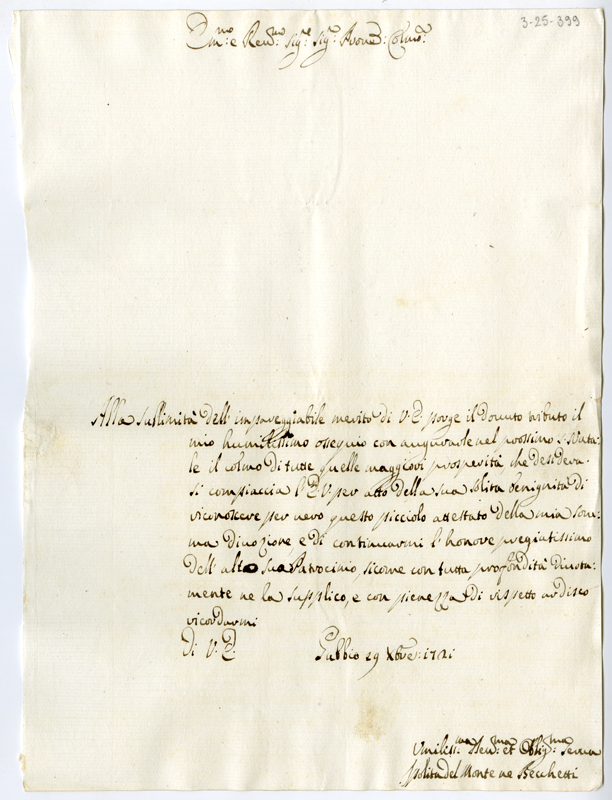 3-25-399
Em:mo e Rev:mo Sig:re Sig:r Pron: Colmo:
Alla sublimità dell'impareggiabile merito di V. E. porge il dovuto tributo il
mio humilissimo ossequio con augurarle nel prossimo S. Nata:
le il colmo di tutte quelle maggiori prosperità che desidera.
Si compiaccia l'E. V. per atto della sua solita benignità di
riconoscere per vero questo picciolo attestato della mia som:
ma divozione, e di continuarmi l'honore pregiatissimo
dell'alto suo Patrocinio, sicome con tutta profondità divota:
mente ne la supplico, e con pienezza di rispetto ardisco
ricordarmi
Di V. E. Gubbio 29 Xbre: 1721
Umiliss:ma Dev:ma et Obblig:ma Serva
Ipolita del Monte ne Becchetti